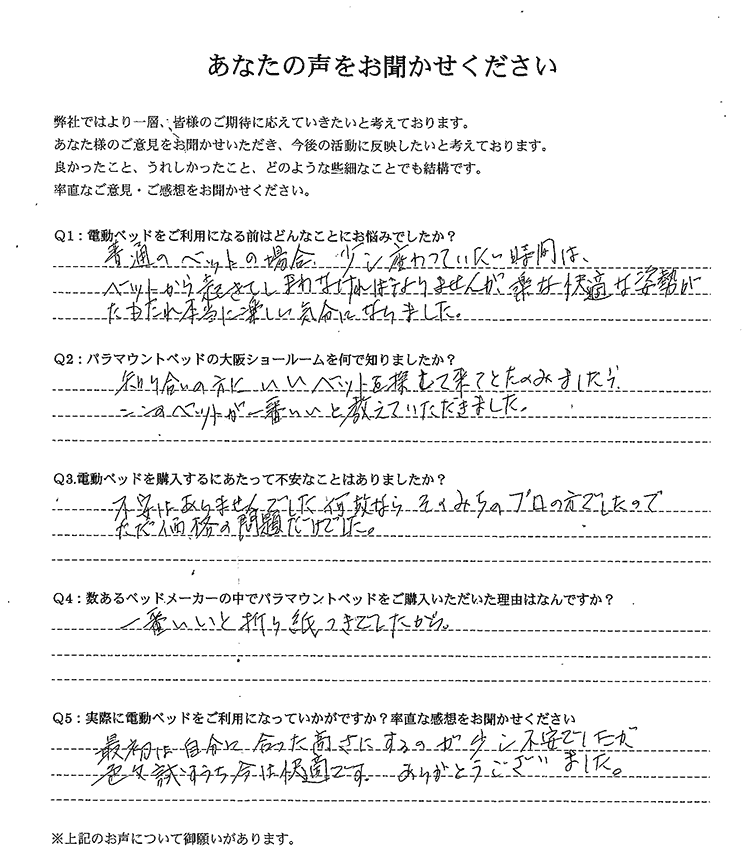 あなたの声をお聞かせください
弊社ではより一層、皆様のご期待に応えていきたいと考えております。
あなた様のご意見をお聞かせいただき、今後の活動に反映したいと考えております。
良かったこと、うれしかったこと、どのような些細なことでも結構です。
率直なご意見・ご感想をお聞かせください。
Q1：電動ベッドをご利用になる前はどんなことにお悩みでしたか？
普通のベットの場合、少し座わっていたい時間は、
ベットから起きてしまわなければなりませんが、楽な快適な姿勢が
たもたれ本当に楽しい気分になりました。
Q2：パラマウントベッドの大阪ショールームを何で知りましたか？
知り合いの方にいいベットを探して来てとたのみましたら
ここのベットが一番いいと教えていただきました。
Q3.電動ベッドを購入するにあたって不安なことはありましたか？
不安はありませんでした何故ならそのみちのプロの方でしたので
ただ価格の問題だけでした。
Q4：数あるベッドメーカーの中でパラマウントベッドをご購入いただいた理由はなんですか？
一番いいと折り紙つきでしたから。
Q5：実際に電動ベッドをご利用になっていかがですか？率直な感想をお聞かせください
最初は自分に合った高さにするのが少し不安でしたが
色々試すうち今は快適です。ありがとうございました。
※上記のお声について御願いがあります。